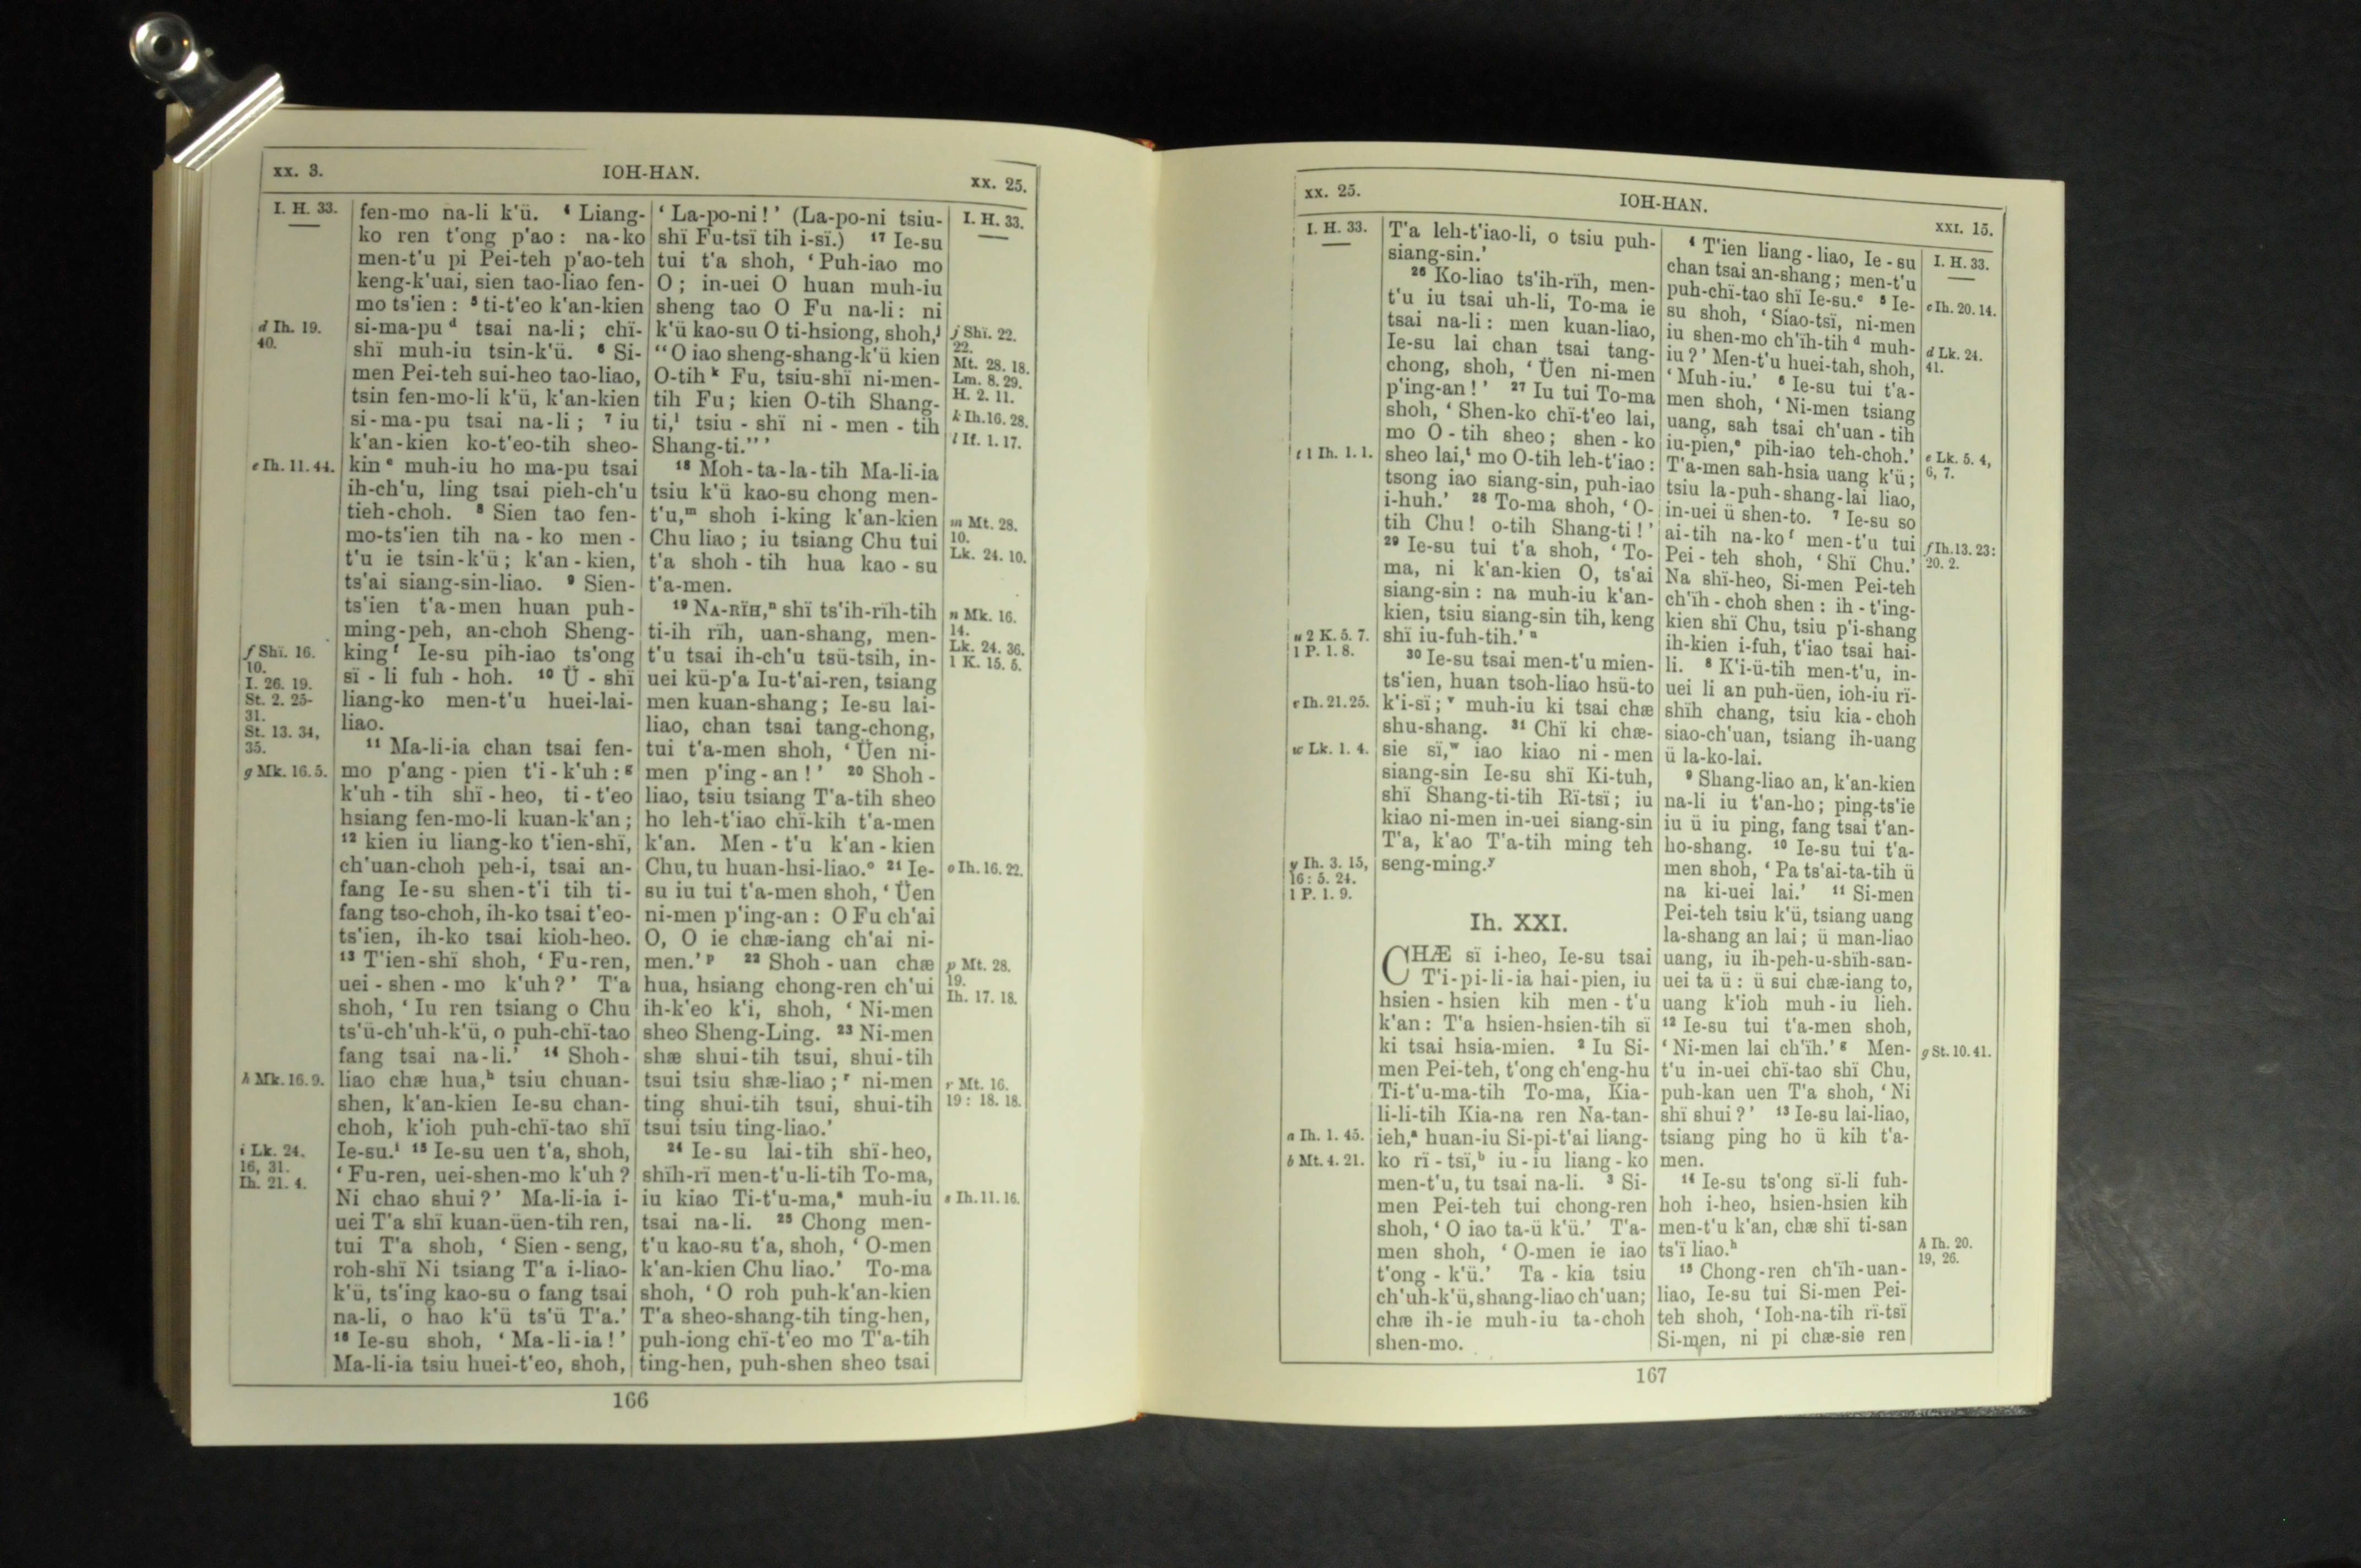 xx. 3.
IOH-HAN.
xx. 25.
I. H. 33.
d Ih. 19.
40.
e Ih. 11. 44.
f Shï. 16.
10.
I. 26. 19.
St. 2. 25-
31.
St. 13. 34,
35.
g Mk. 16. 5.
h Mk. 16. 9.
i Lk. 24.
16, 31.
Ih. 21. 4.
fen-mo na-li k'ü. ⁴ Liang-
ko ren t'ong p'ao : na-ko
men-t'u pi Pei-teh p'ao-teh
keng-k'uai, sien tao-liao fen-
mo ts'ien : ⁵ ti-t'eo k'an-kien
si-ma-pu ᵈ tsai na-li ; chï-
shï muh-iu tsin-k'ü. ⁶ Si-
men Pei-teh sui-heo tao-liao,
tsin fen-mo-li k'ü, k'an-kien
si-ma-pu tsai na-li ; ⁷ iu
k'an-kien ko-t'eo-tih sheo-
kin ᵉ muh-iu ho ma-pu tsai
ih-ch'u, ling tsai pieh-ch'u
tieh-choh. ⁸ Sien tao fen-
mo-ts'ien tih na-ko men-
t'u ie tsin-k'ü ; k'an-kien,
ts'ai siang-sin-liao. ⁹ Sien-
ts'ien t'a-men huan puh-
ming-peh, an-choh Sheng-
king ᶠ Ie-su pih-iao ts'ong
sï-li fuh-hoh. ¹⁰ Ü-shï
liang-ko men-t'u huei-lai-
liao.
¹¹ Ma-li-ia chan tsai fen-
mo p'ang-pien t'i-k'uh : ᵍ
k'uh-tih shï-heo, ti-t'eo
hsiang fen-mo-li kuan-k'an ;
¹² kien iu liang-ko t'ien-shï,
ch'uan-choh peh-i, tsai an-
fang Ie-su shen-t'i tih ti-
fang tso-choh, ih-ko tsai t'eo-
ts'ien, ih-ko tsai kioh-heo.
¹³ T'ien-shï shoh, ‘ Fu-ren,
uei-shen-mo k'uh ? ’ T'a
shoh, ‘ Iu ren tsiang o Chu
ts'ü-ch'uh-k'ü, o puh-chï-tao
fang tsai na-li. ’ ¹⁴ Shoh-
liao chæ hua, ʰ tsiu chuan-
shen, k'an-kien Ie-su chan-
choh, k'ioh puh-chï-tao shï
Ie-su. ⁱ ¹⁵ Ie-su uen t'a, shoh,
‘ Fu-ren, uei-shen-mo k'uh ?
Ni chao shui ? ’ Ma-li-ia i-
uei T'a shï kuan-üen-tih ren,
tui T'a shoh, ‘ Sien-seng,
roh-shï Ni tsiang T'a i-liao-
k'ü, ts'ing kao-su o fang tsai
na-li, o hao k'ü ts'ü T'a. ’
¹⁶ Ie-su shoh, ‘ Ma-li-ia ! ’
Ma-li-ia tsiu huei-t'eo, shoh,
‘ La-po-ni ! ’ (La-po-ni tsiu-
shï Fu-tsï tih i-sï.) ¹⁷ Ie-su
tui t'a shoh, ‘ Puh-iao mo
O ; in-uei O huan muh-iu
sheng tao O Fu na-li : ni
k'ü kao-su O ti-hsiong, shoh, ʲ
“ O iao sheng-shang-k'ü kien
O-tih ᵏ Fu, tsiu-shï ni-men-
tih Fu ; kien O-tih Shang-
ti, ˡ tsiu-shï ni-men-tih
Shang-ti. ” ’
¹⁸ Moh-ta-la-tih Ma-li-ia
tsiu k'ü kao-su chong men-
t'u, ᵐ shoh i-king k'an-kien
Chu liao ; iu tsiang Chu tui
t'a shoh-tih hua kao-su
t'a-men.
¹⁹ NA-RÏH, ⁿ shï ts'ih-rïh-tih
ti-ih rïh, uan-shang, men-
t'u tsai ih-ch'u tsü-tsih, in-
uei kü-p'a Iu-t'ai-ren, tsiang
men kuan-shang ; Ie-su lai-
liao, chan tsai tang-chong,
tui t'a-men shoh, ‘ Üen ni-
men p'ing-an ! ’ ²⁰ Shoh-
liao, tsiu tsiang T'a-tih sheo
ho leh-t'iao chï-kih t'a-men
k'an. Men-t'u k'an-kien
Chu, tu huan-hsi-liao. ᵒ ²¹ Ie-
su iu tui t'a-men shoh, ‘ Üen
ni-men p'ing-an : O Fu ch'ai
O, O ie chæ-iang ch'ai ni-
men. ’ ᵖ ²² Shoh-uan chæ
hua, hsiang chong-ren ch'ui
ih-k'eo k'i, shoh, ‘ Ni-men
sheo Sheng-Ling. ²³ Ni-men
shæ shui-tih tsui, shui-tih
tsui tsiu shæ-liao ; ʳ ni-men
ting shui-tih tsui, shui-tih
tsui tsiu ting-liao. ’
²⁴ Ie-su lai-tih shï-heo,
shïh-rï men-t'u-li-tih To-ma,
iu kiao Ti-t'u-ma, ˢ muh-iu
tsai na-li. ²⁵ Chong men-
t'u kao-su t'a, shoh, ‘ O-men
k'an-kien Chu liao. ’ To-ma
shoh, ‘ O roh puh-k'an-kien
T'a sheo-shang-tih ting-hen,
puh-iong chï-t'eo mo T'a-tih
ting-hen, puh-shen sheo tsai
I. H. 33.
j Shï. 22.
22.
Mt. 28. 18.
Lm. 8. 29.
H. 2. 11.
k Ih. 16. 28.
l If. 1. 17.
m Mt. 28.
10.
Lk. 24. 10.
n Mk. 16.
14.
Lk. 24. 36.
1 K. 15. 5.
o Ih. 16. 22.
p Mt. 28.
19.
Ih. 17. 18.
r Mt. 16.
19 : 18. 18.
s Ih. 11. 16.
166
xx. 25.
IOH-HAN.
XXI. 15.
I. H. 33.
t 1 Ih. 1. 1.
u 2 K. 5. 7.
1 P. 1. 8.
v Ih. 21. 25.
w Lk. 1. 4.
y Ih. 3. 15,
16 : 5. 24.
1 P. 1. 9.
a Ih. 1. 45.
b Mt. 4. 21.
T'a leh-t'iao-li, o tsiu puh-
siang-sin. ’
²⁶ Ko-liao ts'ih-rïh, men-
t'u iu tsai uh-li, To-ma ie
tsai na-li : men kuan-liao,
Ie-su lai chan tsai tang-
chong, shoh, ‘ Üen ni-men
p'ing-an ! ’ ²⁷ Iu tui To-ma
shoh, ‘ Shen-ko chï-t'eo lai,
mo O-tih sheo ; shen-ko
sheo lai, ᵗ mo O-tih leh-t'iao :
tsong iao siang-sin, puh-iao
i-huh. ’ ²⁸ To-ma shoh, ‘ O-
tih Chu ! o-tih Shang-ti ! ’
²⁹ Ie-su tui t'a shoh, ‘ To-
ma, ni k'an-kien O, ts'ai
siang-sin : na muh-iu k'an-
kien, tsiu siang-sin tih, keng
shï iu-fuh-tih. ’ ᵘ
³⁰ Ie-su tsai men-t'u mien-
ts'ien, huan tsoh-liao hsü-to
k'i-sï ; ᵛ muh-iu ki tsai chæ
shu-shang. ³¹ Chï ki chæ-
sie sï, ʷ iao kiao ni-men
siang-sin Ie-su shï Ki-tuh,
shï Shang-ti-tih Rï-tsï ; iu
kiao ni-men in-uei siang-sin
T'a, k'ao T'a-tih ming teh
seng-ming. ʸ
Ih. XXI.
CHÆ sï i-heo, Ie-su tsai
T'i-pi-li-ia hai-pien, iu
hsien-hsien kih men-t'u
k'an : T'a hsien-hsien-tih sï
ki tsai hsia-mien. ² Iu Si-
men Pei-teh, t'ong ch'eng-hu
Ti-t'u-ma-tih To-ma, Kia-
li-li-tih Kia-na ren Na-tan-
ieh, ᵃ huan-iu Si-pi-t'ai liang-
ko rï-tsï, ᵇ iu-iu liang-ko
men-t'u, tu tsai na-li. ³ Si-
men Pei-teh tui chong-ren
shoh, ‘ O iao ta-ü k'ü. ’ T'a-
men shoh, ‘ O-men ie iao
t'ong-k'ü. ’ Ta-kia tsiu
ch'uh-k'ü, shang-liao ch'uan ;
chæ ih-ie muh-iu ta-choh
shen-mo.
⁴ T'ien liang-liao, Ie-su
chan tsai an-shang ; men-t'u
puh-chï-tao shï Ie-su. ᶜ ⁵ Ie-
su shoh, ‘ Siao-tsï, ni-men
iu shen-mo ch'ïh-tih ᵈ muh-
iu ? ’ Men-t'u huei-tah, shoh,
‘ Muh-iu. ’ ⁶ Ie-su tui t'a-
men shoh, ‘ Ni-men tsiang
uang, sah tsai ch'uan-tih
iu-pien, ᵉ pih-iao teh-choh. ’
T'a-men sah-hsia uang k'ü ;
tsiu la-puh-shang-lai liao,
in-uei ü shen-to. ⁷ Ie-su so
ai-tih na-ko ᶠ men-t'u tui
Pei-teh shoh, ‘ Shï Chu. ’
Na shï-heo, Si-men Pei-teh
ch'ïh-choh shen : ih-t'ing-
kien shï Chu, tsiu p'i-shang
ih-kien i-fuh, t'iao tsai hai-
li. ⁸ K'i-ü-tih men-t'u, in-
uei li an puh-üen, ioh-iu rï-
shïh chang, tsiu kia-choh
siao-ch'uan, tsiang ih-uang
ü la-ko-lai.
⁹ Shang-liao an, k'an-kien
na-li iu t'an-ho ; ping-ts'ie
iu ü iu ping, fang tsai t'an-
ho-shang. ¹⁰ Ie-su tui t'a-
men shoh, ‘ Pa ts'ai-ta-tih ü
na ki-uei lai. ’ ¹¹ Si-men
Pei-teh tsiu k'ü, tsiang uang
la-shang an lai ; ü man-liao
uang, iu ih-peh-u-shïh-san-
uei ta ü : ü sui chæ-iang to,
uang k'ioh muh-iu lieh.
¹² Ie-su tui t'a-men shoh,
‘ Ni-men lai ch'ïh. ’ ᵍ Men-
t'u in-uei chï-tao shï Chu,
puh-kan uen T'a shoh, ‘ Ni
shï shui ? ’ ¹³ Ie-su lai-liao,
tsiang ping ho ü kih t'a-
men.
¹⁴ Ie-su ts'ong sï-li fuh-
hoh i-heo, hsien-hsien kih
men-t'u k'an, chæ shï ti-san
ts'ï liao. ʰ
¹⁵ Chong-ren ch'ïh-uan-
liao, Ie-su tui Si-men Pei-
teh shoh, ‘ Ioh-na-tih rï-tsï
Si-men, ni pi chæ-sie ren
I. H. 33.
c Ih. 20. 14.
d Lk. 24.
41.
e Lk. 5. 4,
6, 7.
f Ih. 13. 23 :
20. 2.
g St. 10. 41.
h Ih. 20.
19, 26.
167